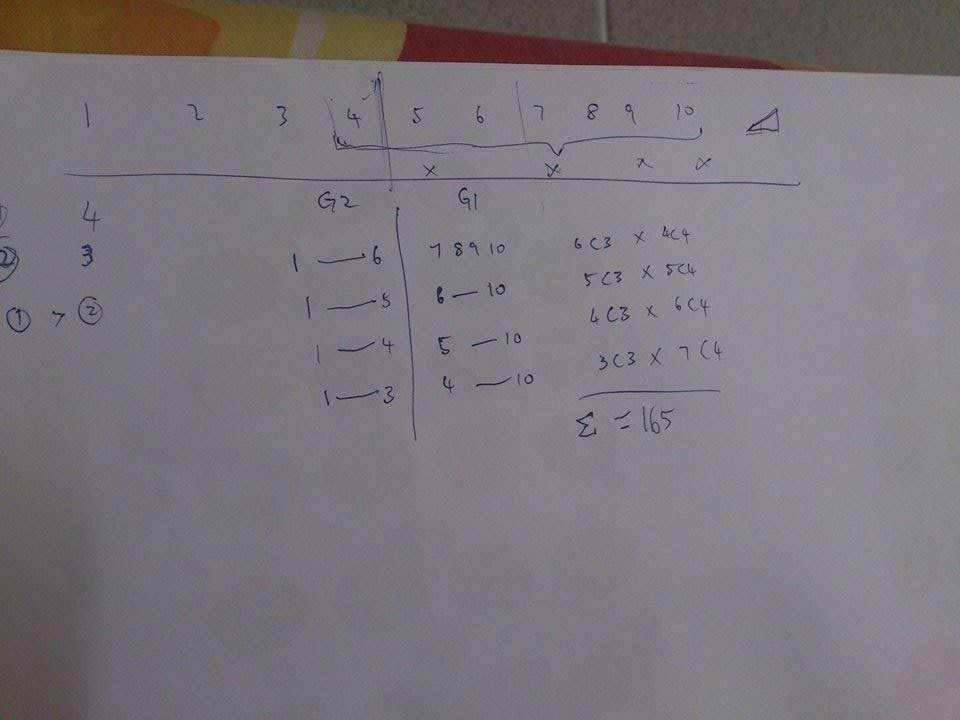 1 2 3 4 5 6 7 8 9 10
x x x x
G2 G1
① 4
② 3
① > ②
1 — 6 7 8 9 10 6C3 x 4C4
1 — 5 6 — 10 5C3 x 5C4
1 — 4 5 — 10 4C3 x 6C4
1 — 3 4 — 10 3C3 x 7C4
Σ = 165